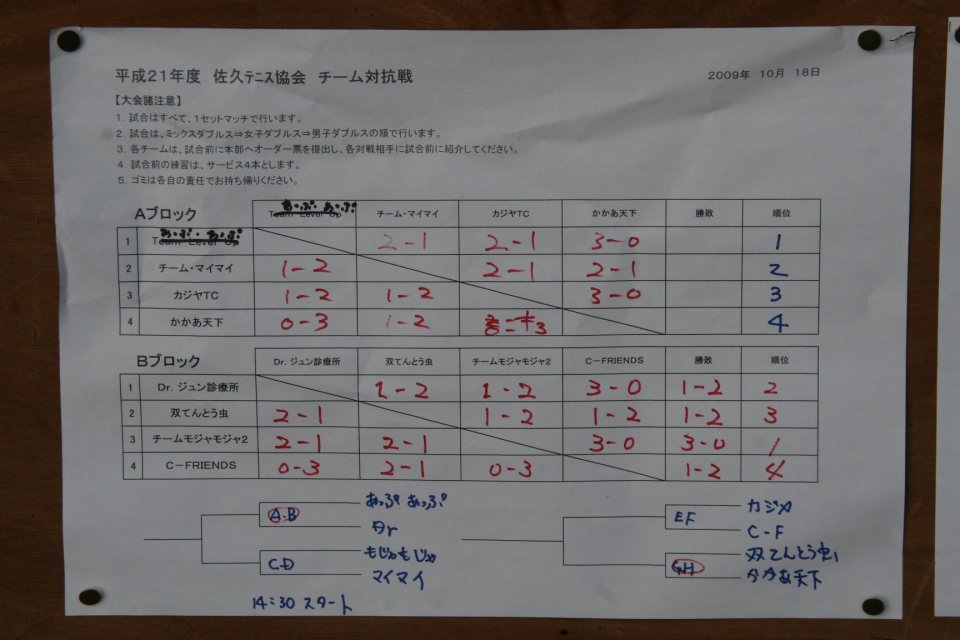 平成21年度 佐久テニス協会 チーム対抗戦 2009年 10月 18日
【大会諸注意】
1. 試合はすべて、1セットマッチで行います。
2. 試合は、ミックスダブルス⇒女子ダブルス⇒男子ダブルスの順で行います。
3. 各チームは、試合前に本部へオーダー票を提出し、各対戦相手に試合前に紹介してください。
4. 試合前の練習は、サービス4本とします。
5. ゴミは各自の責任でお持ち帰りください。
Aブロック Team Level Up あっぷ・あっぷ チーム・マイマイ カジヤTC かかあ天下 勝敗 順位
1 Team Level Up あっぷ・あっぷ 2-1 2-1 3-0 1
2 チーム・マイマイ 1-2 2-1 2-1 2
3 カジヤTC 1-2 1-2 3-0 3
4 かかあ天下 0-3 1-2 4
Bブロック Dr. ジュン診療所 双てんとう虫 チームモジャモジャ2 C-FRIENDS 勝敗 順位
1 Dr. ジュン診療所 1-2 1-2 3-0 1-2 2
2 双てんとう虫 2-1 1-2 1-2 1-2 3
3 チームモジャモジャ2 2-1 2-1 3-0 3-0 1
4 C-FRIENDS 0-3 2-1 0-3 1-2 4
A.B あっぷあっぷ
Dr
CD もじゃもじゃ
マイマイ
EF カジヤ
C-F
GH 双てんとう虫
かかあ天下
14:30 スタート